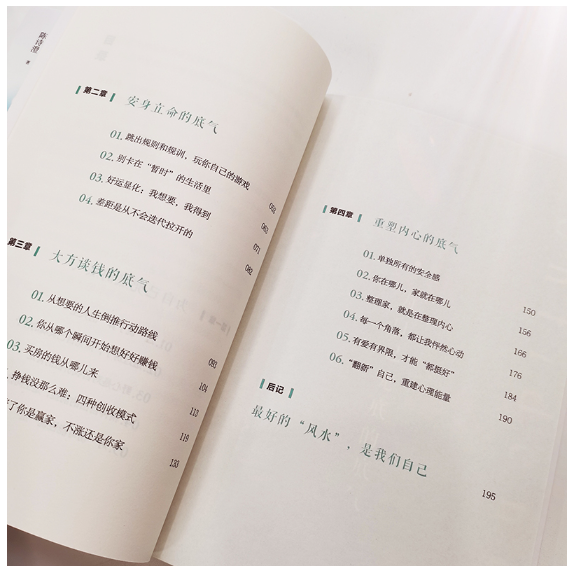 陈诗澄
第二章 安身立命的底气
01. 跳出规则和规训，玩你自己的游戏
02. 别卡在“暂时”的生活里
03. 好运显化：我想要，我得到 071
04. 差距是从不会迭代拉开的
第三章 大方谈钱的底气
01. 从想要的人生倒推行动路线 093
02. 你从哪个瞬间开始想好好赚钱 104
03. 买房的钱从哪儿来 112
挣钱没那么难：四种创收模式 119
了你是赢家，不涨还是你家 133
第四章 重塑内心的底气
01. 单独所有的安全感 150
02. 你在哪儿，家就在哪儿 156
03. 整理家，就是在整理内心 166
04. 每一个角落，都让我怦然心动 176
05. 有爱有界限，才能“都挺好” 184
06. “翻新”自己，重建心理能量 190
后记
最好的“风水”，是我们自己 195